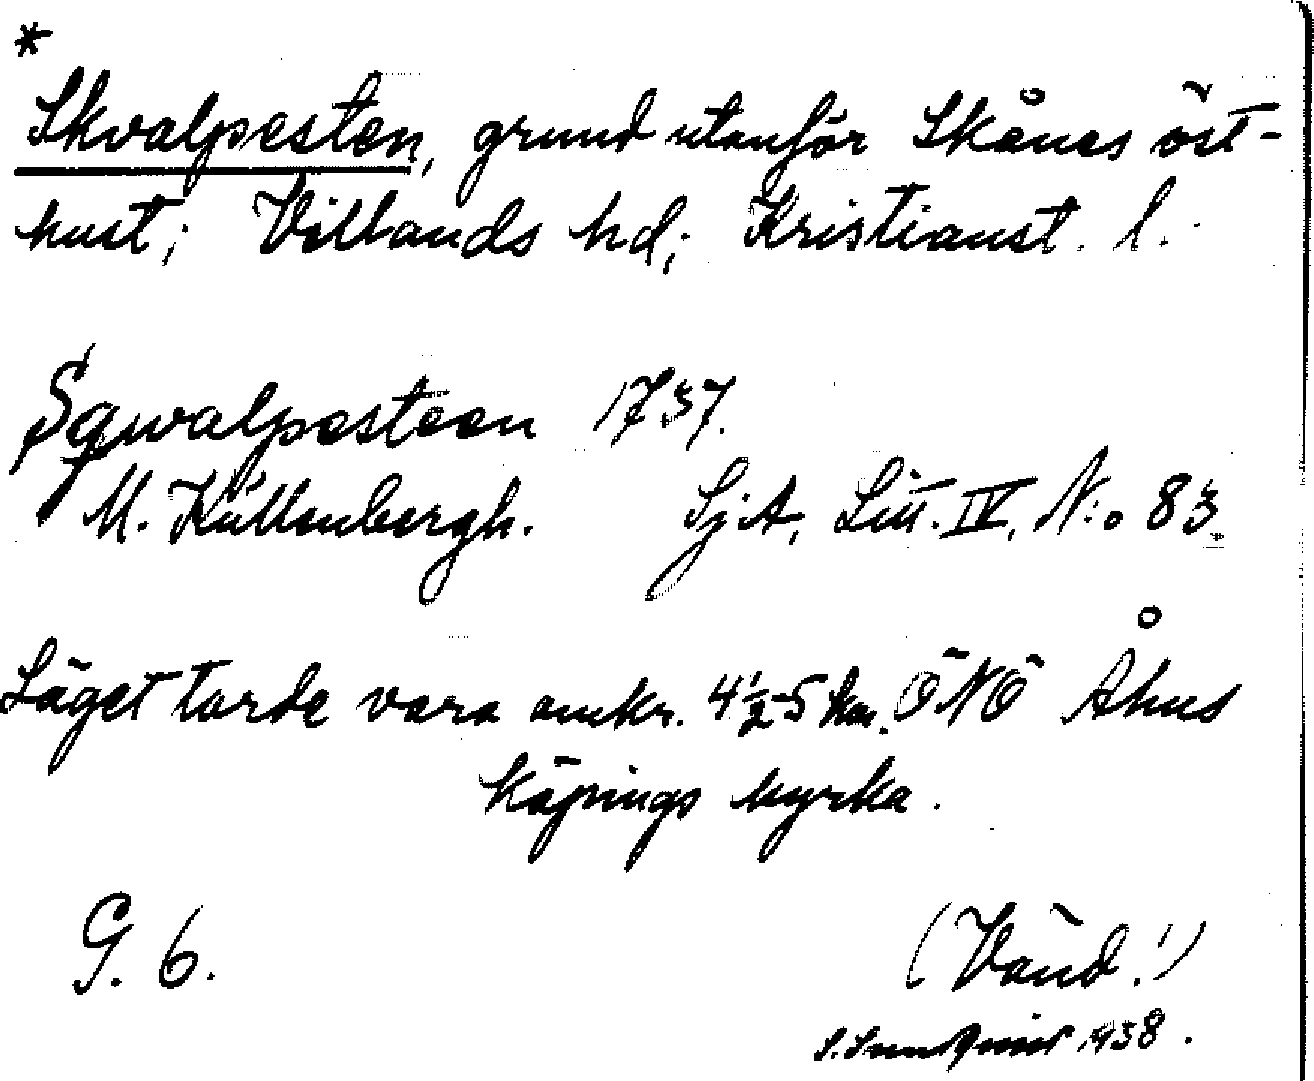 *
Skvalpesten, grund utanför Skånes öst-
kust; Villands hd; Kristianst. l.
Sqwalpesteen 1737.
M. Källenbergh. SjA, Litt. IV, N:o 83.
Läget torde vara omkr. 4½-5 km. ÖNÖ Åhus
köpings kyrka.
G. 6.
(Vänd!)
S. 1938.